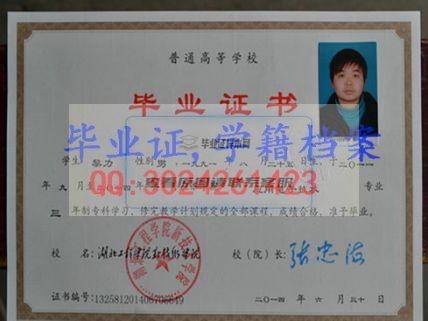 普通高等学校
毕业证书
毕业证样本网
毕业证,学籍档案
学生 黎力 性别 男
查看原图请联系客服
qq:3024261423
年 九 月至二〇一四年 专业
三 年制专科学习，修完教学计划规定的全部课程，成绩合格，准予毕业。
校 名：湖北工程学院新技术学院 校（院）长：张忠海
证书编号：132581201406706849 二〇一四 年 六 月 三十 日